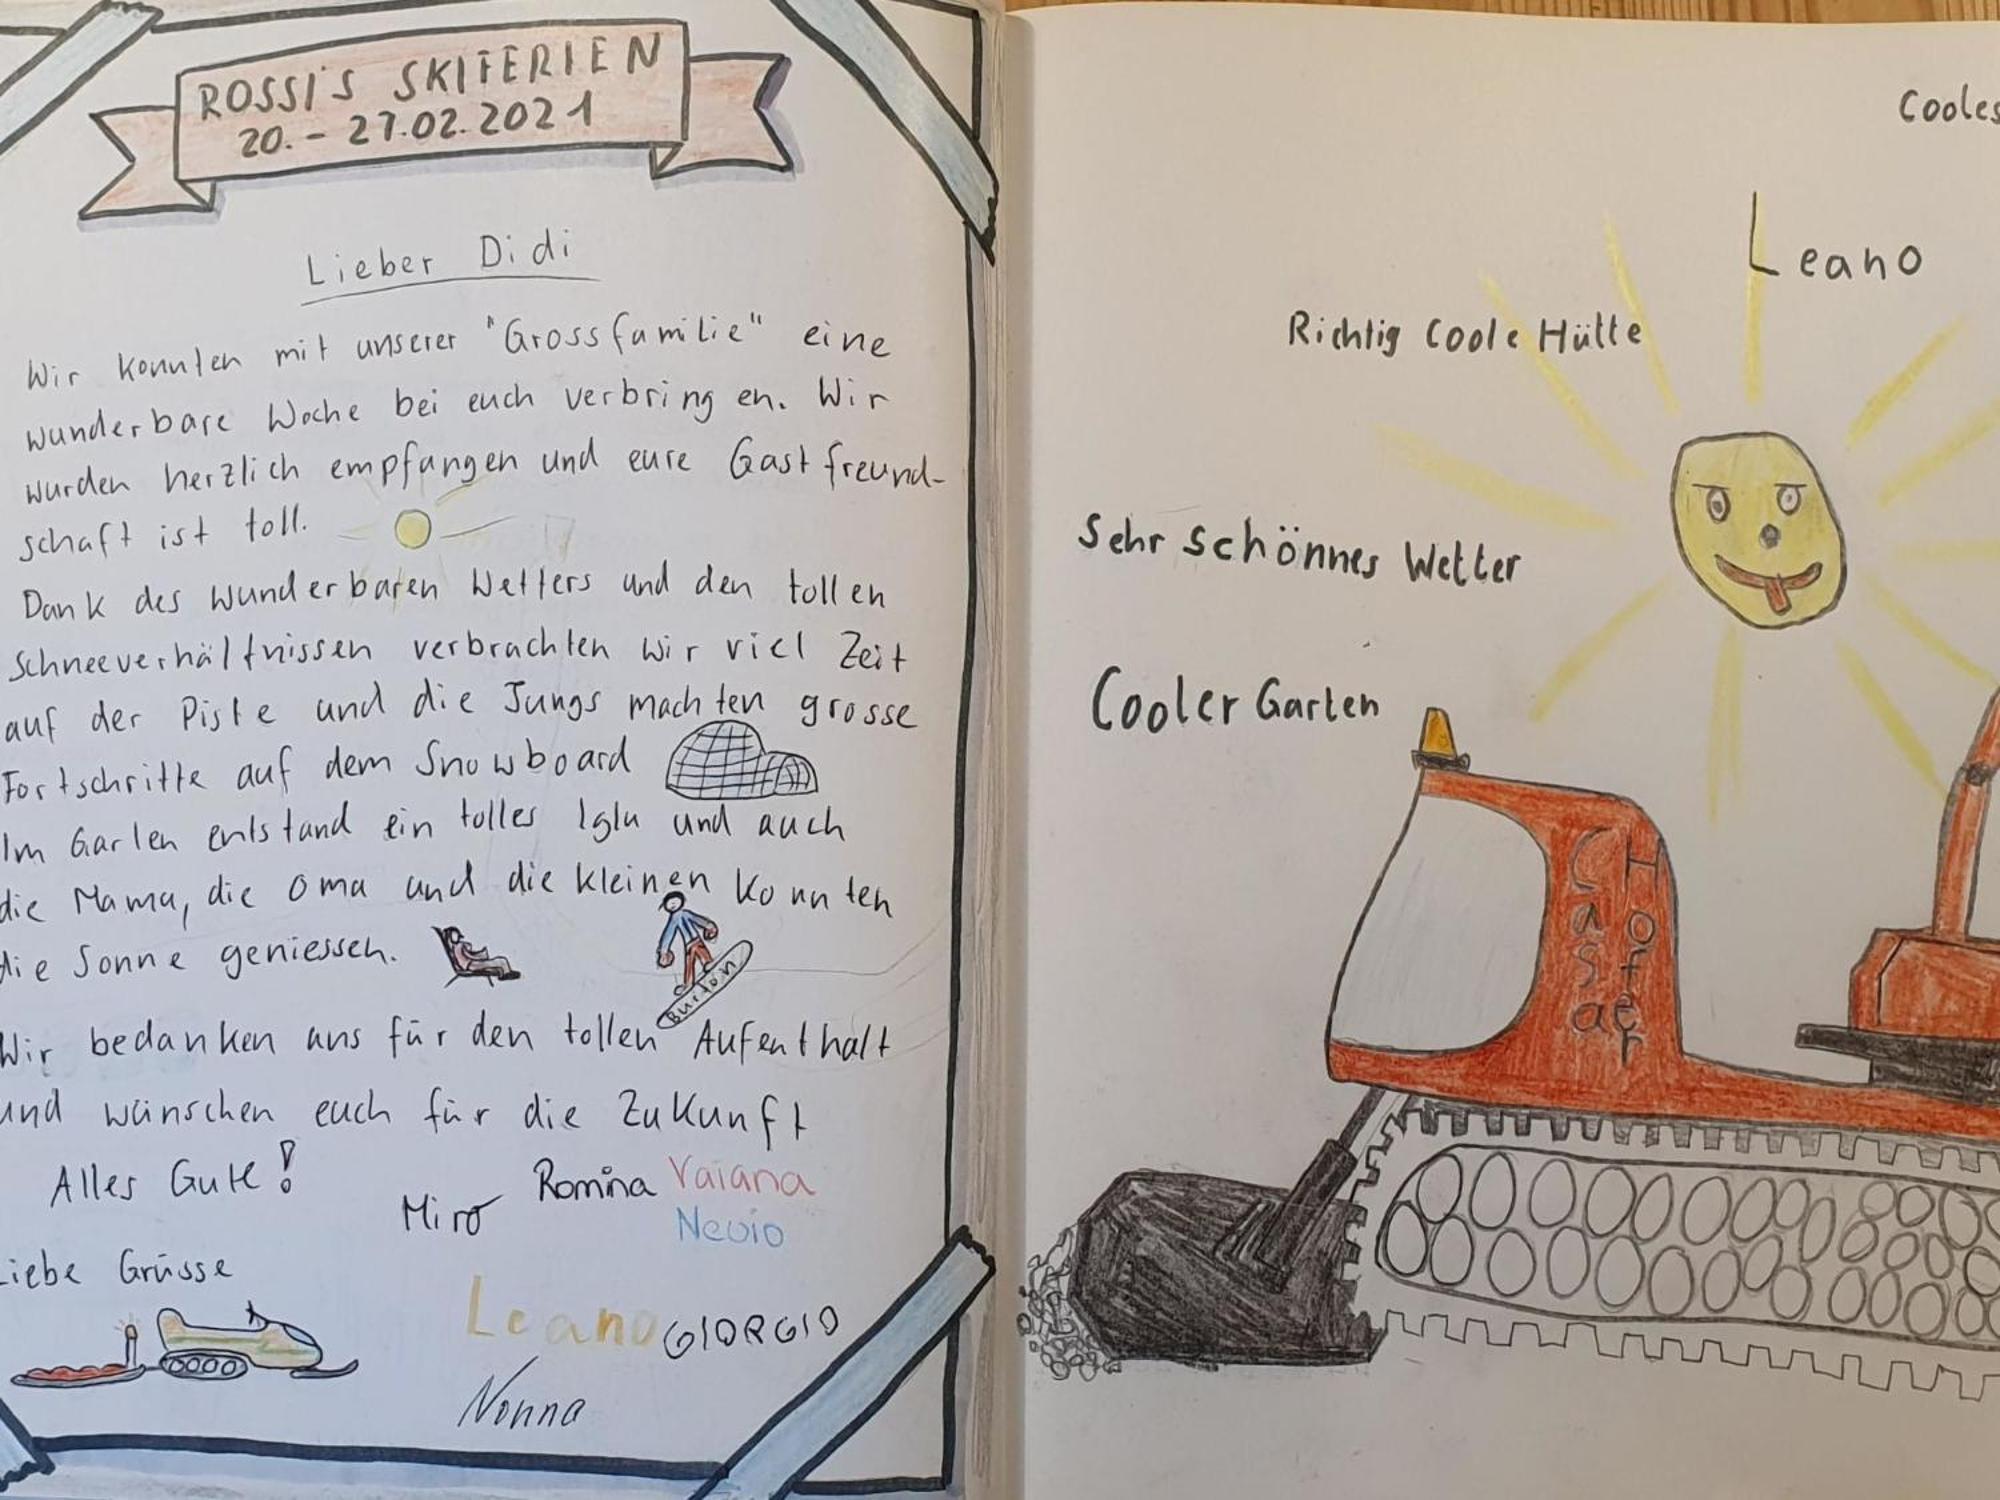 ROSSI'S SKIFERIEN
20. - 27.02.2021
Lieber Didi
Wir konnten mit unserer "Grossfamilie" eine
wunderbare Woche bei euch verbringen. Wir
wurden herzlich empfangen und eure Gastfreund-
schaft ist toll.
Dank des wunderbaren Wetters und den tollen
Schneeverhältnissen verbrachten wir viel Zeit
auf der Piste und die Jungs machten grosse
Fortschritte auf dem Snowboard
Im Garten entstand ein tolles Iglu und auch
die Mama, die Oma und die kleinen konnten
die Sonne geniessen.
Burton
Wir bedanken uns für den tollen Aufenthalt
und wünschen euch für die Zukunft
Alles Gute!
Miro Romina Vaiana
Nevio
Liebe Grüsse
Leano GIORGIO
Nonna
Cooles
Leano
Richtig Coole Hütte
Sehr schönnes Wetter
Cooler Garten
Casa
CHofer